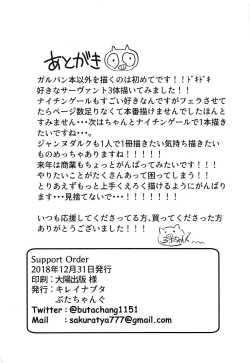 あとがき
ガルパン本以外を描くのは初めてです!!ﾄﾞｷﾄﾞｷ
好きなサーヴァント3体描いてみました!!
ナイチンゲールもすごい好きなんですがフェラさせて
たらページ数足りなくて本番描けませんでしたほんと
すみません・・・次はちゃんとナイチンゲールで1本描き
たいですね・・・。
ジャンヌダルクも1人で1冊描きたい気持ち描きたい
ものめっちゃありますね!!!!!
来年は商業もちょっとがんばってみたいです!!!
やりたいことがたくさんあって困ってしまう!!
とりあえずもっと上手くえろく描けるようにがんばり
ます・・・見捨てないで・・・!!!!!!!!
いつも応援してくださってる方、買ってくださった方
ありがとうございました!!!
Support Order
2018年12月31日発行
印刷:大陽出版 様
発行:キレイナブタ
ぶたちゃんぐ
Twitter : @butachang1151
Mail : sakuratya777@gmail.com